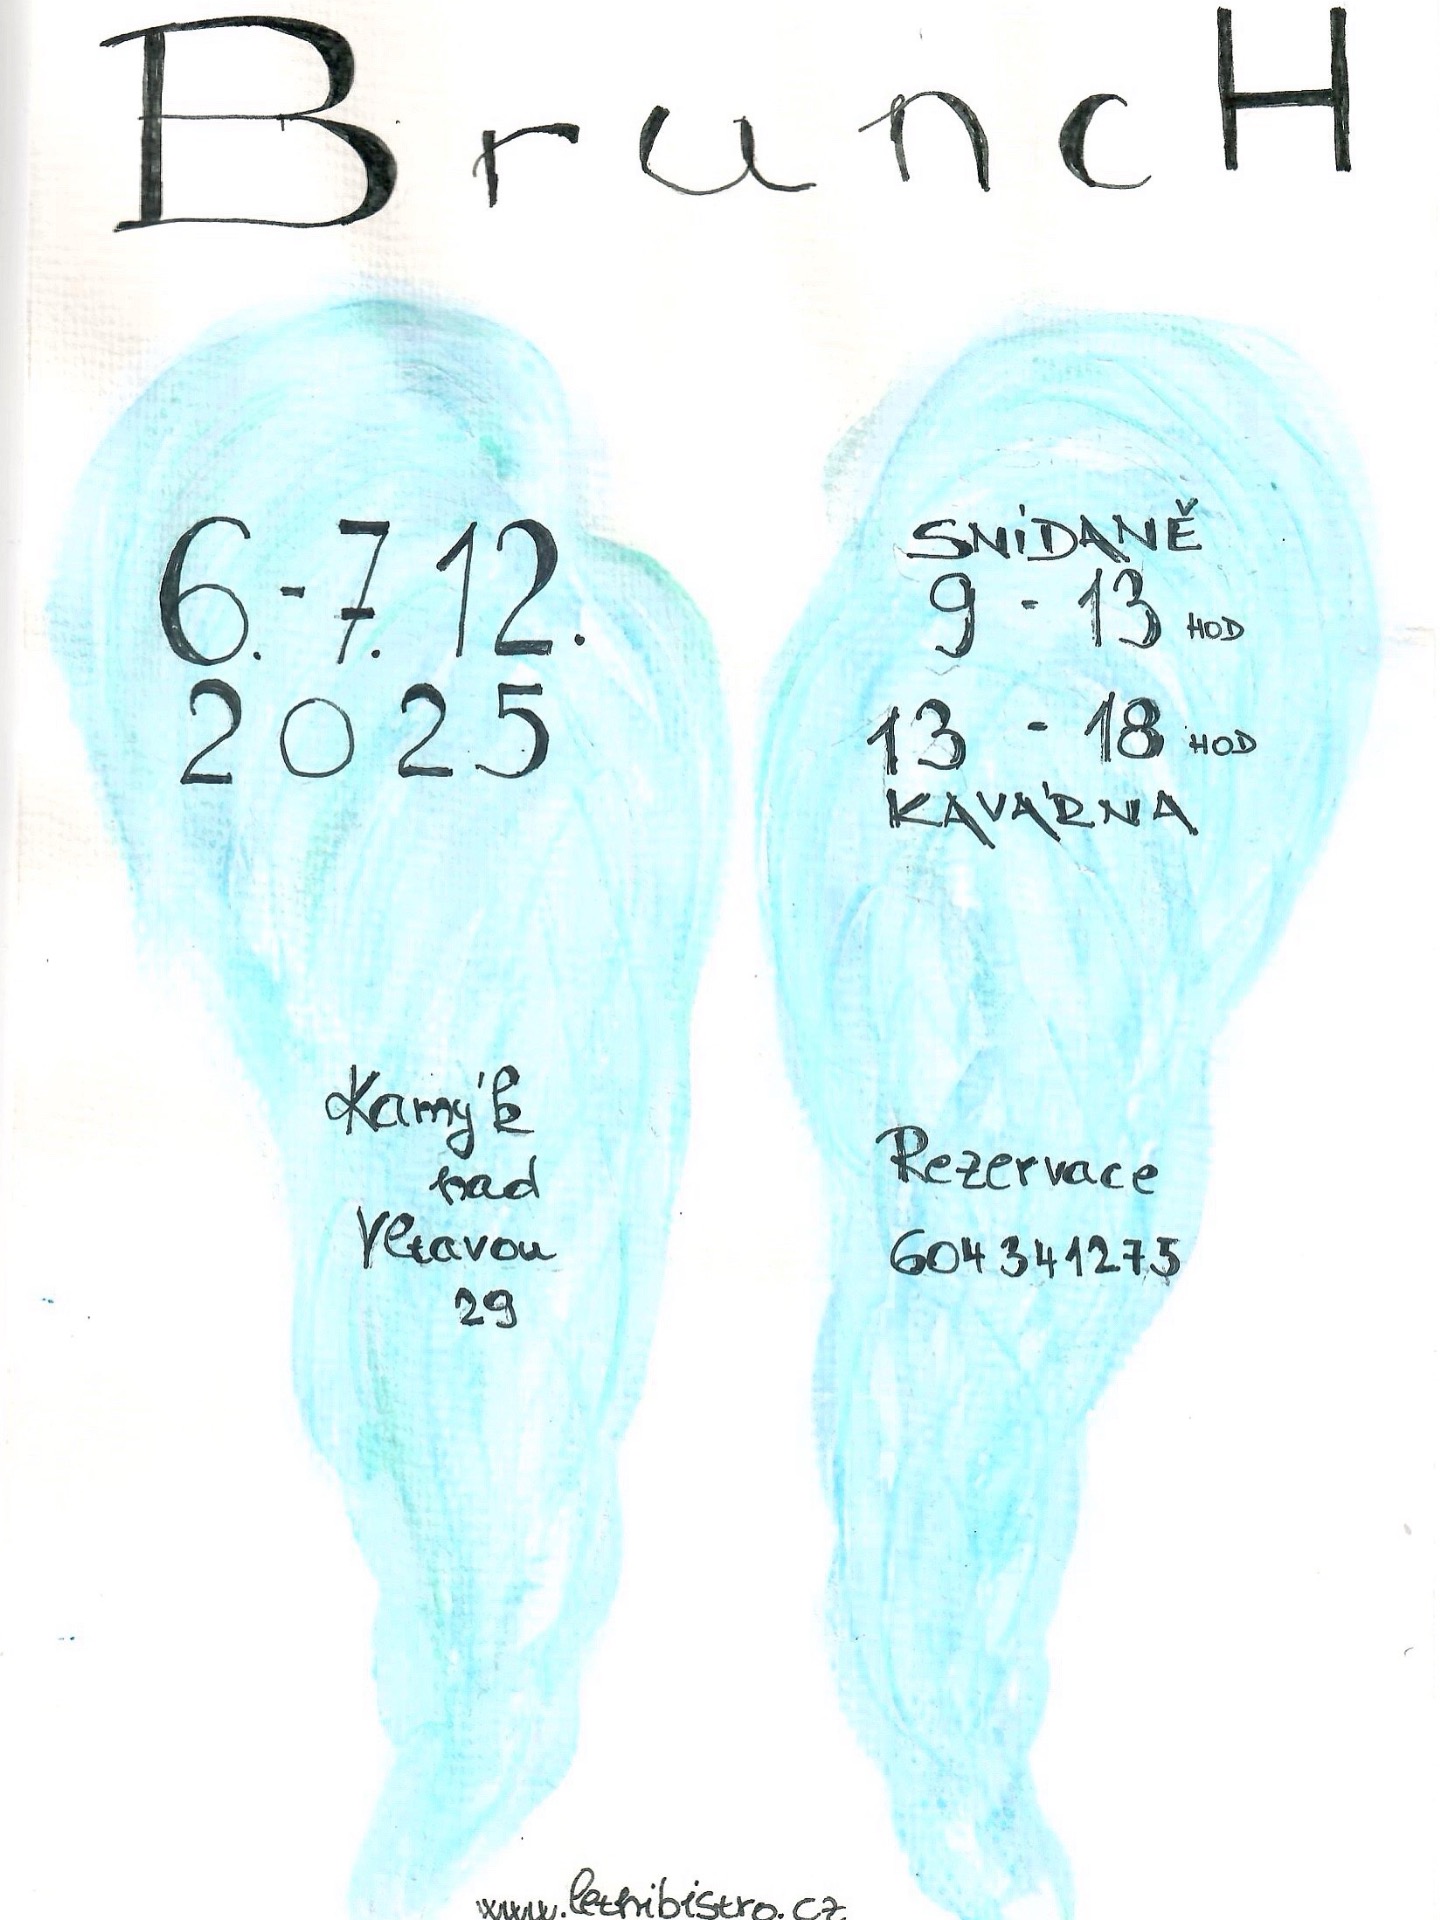 BruncH
6.-7.12.
2025
SNÍDANĚ
9 - 13 HOD
13 - 18 HOD
KAVÁRNA
Kamýk
nad
Vltavou
29
Rezervace
604341275
www.letnibistro.cz